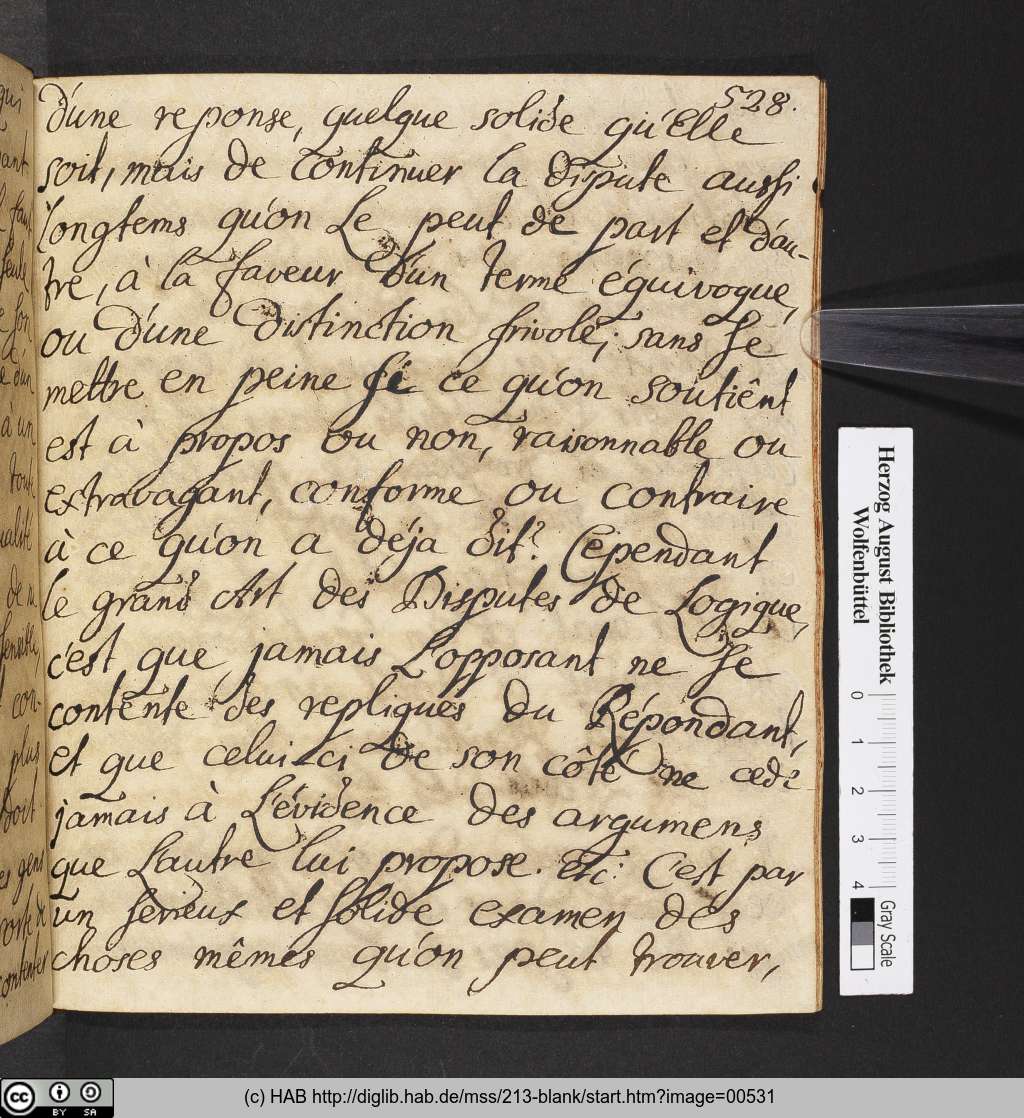 528.
d'une reponse, quelque solide qu'Elle
soit, mais de continuer la dispute aussi
longtems qu'on Le peut de part et d'au-
tre, à la faveur d'un terme équivoque,
ou d'une distinction frivole; sans se
mettre en peine si ce qu'on soutiênt
est à propos ou non, raisonnable ou
extravagant, conforme ou contraire
à ce qu'on a déja dit? Cependant
le grand Art des Disputes de Logique,
c'est, que jamais L'opposant ne se
contente des repliques du Répondant,
et que celui-ci de son côté ne cede
jamais à L'évidence des argumens
que L'autre lui propose. Etc: C'est par
un serieux et solide examen des
choses mêmes qu'on peut trouver,
Herzog August Bibliothek
Wolfenbüttel
0 1 2 3 4
Gray Scale
cc BY SA
(c) HAB http://diglib.hab.de/mss/213-blank/start.htm?image=00531